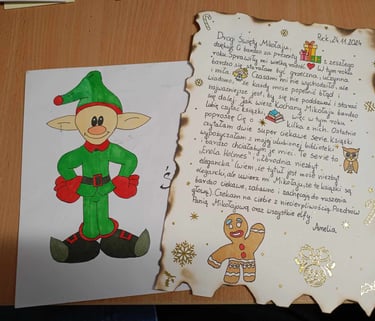 Rek, 24.11.2024
Drogi Święty Mikołaju,
dziękuję Ci bardzo za prezenty z zeszłego
roku. Sprawiły mi wielką radość. W tym roku
bardzo się starałam być grzeczna, uczynna
i miła. Czasami mi nie wychodziło, ale
wiadomo, że każdy może popełnić błąd
najważniejsze jest, by się nie poddawać i starać
się dalej. Jak wiesz kochany Mikołaju bardzo
lubię czytać książki, więc w tym roku
poproszę Cię o kilka z nich. Ostatnio
czytałam dwie super ciekawe serie książek
wypożyczałam z mojej ulubionej biblioteki i
bardzo chciałabym je mieć. Te serie to
„Enola Holmes", „Zbrodnia niezbyt
elegancka" (wiem, że tytuł jest mało
elegancki, ale uwierz mi Mikołaju, że te książki są
bardzo ciekawe, zabawne i zachęcają do ruszenia
głową). Czekam na ciebie z niecierpliwością. Pozdrów
Panią Mikołajową oraz wszystkie elfy.
Amelia